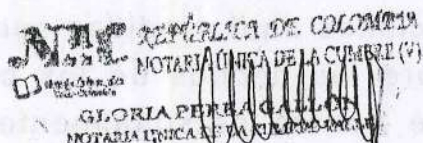 REPÚBLICA DE COLOMBIA
NOTARIA ÚNICA DE LA CUMBRE (V)
GLORIA PEREA GALLON
NOTARIA UNICA DE LA CUMBRE VALLE